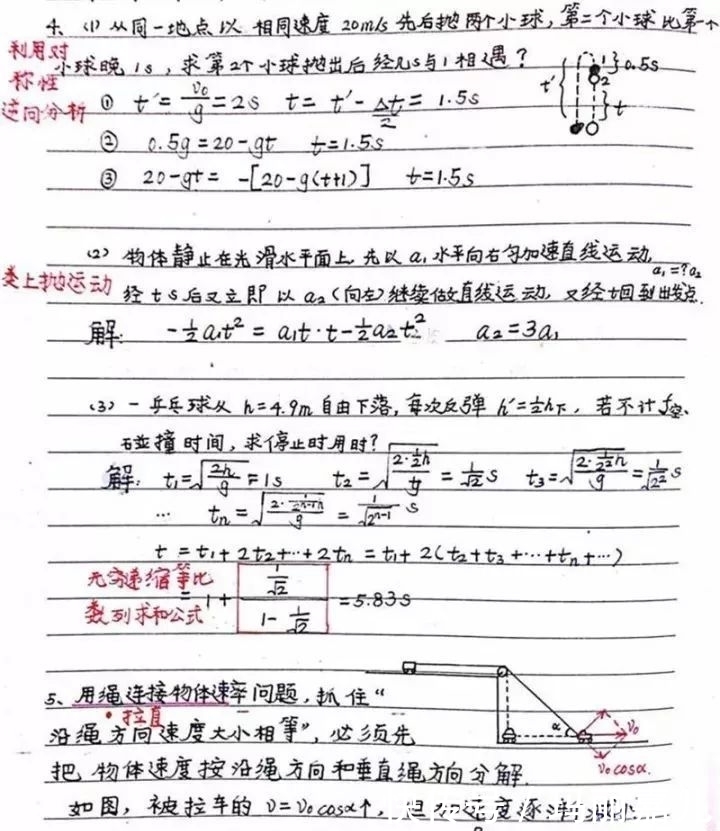 4、(1) 从同一地点以 相同速度 20m/s 先后抛两个小球，第二个小球比第一个
小球晚 1s，求第2个小球抛出后经几s与1相遇？
利用对
称性
逆向分析
① t' = v₀/g = 2s t = t' - Δt/2 = 1.5s
② 0.5g = 20 - gt t = 1.5s
③ 20 - gt = -[20 - g(t+1)] t = 1.5s
t' 1 0.5s
2
t
(2) 物体静止在光滑水平面上 先以 a₁ 水平向右匀加速直线运动,
a₁=?a₂
类上抛运动
经 t s 后又立即 以 a₂(向左)继续做直线运动, 又经t回到出发点.
解: -½a₁t² = a₁t·t - ½a₂t² a₂ = 3a₁
(3) 一乒乓球从 h=4.9m 自由下落, 每次反弹 h'=½h下, 若不计f空、
碰撞时间, 求停止时用时?
解: t₁=√(2h/g)=1s t₂=√(2·½h/g)=1/√2 s t₃=√(2·1/2²h/g)=1/√2² s
… tₙ=√(2·1/2ⁿ⁻¹h/g) = 1/√2ⁿ⁻¹ s
t = t₁+2t₂+…+2tₙ = t₁+2(t₂+t₃+…+tₙ+…)
无穷递缩等比
数列求和公式
= 1 + (1/√2)/(1 - 1/√2) = 5.83s
5、用绳连接物体速率问题, 抓住“
拉直
沿绳方向速度大小相等”, 必须先
把 物体速度按沿绳方向和垂直绳方向分解.
α v₀
v₀cosα.
如图, 被拉车的 v=v₀cosα↑,